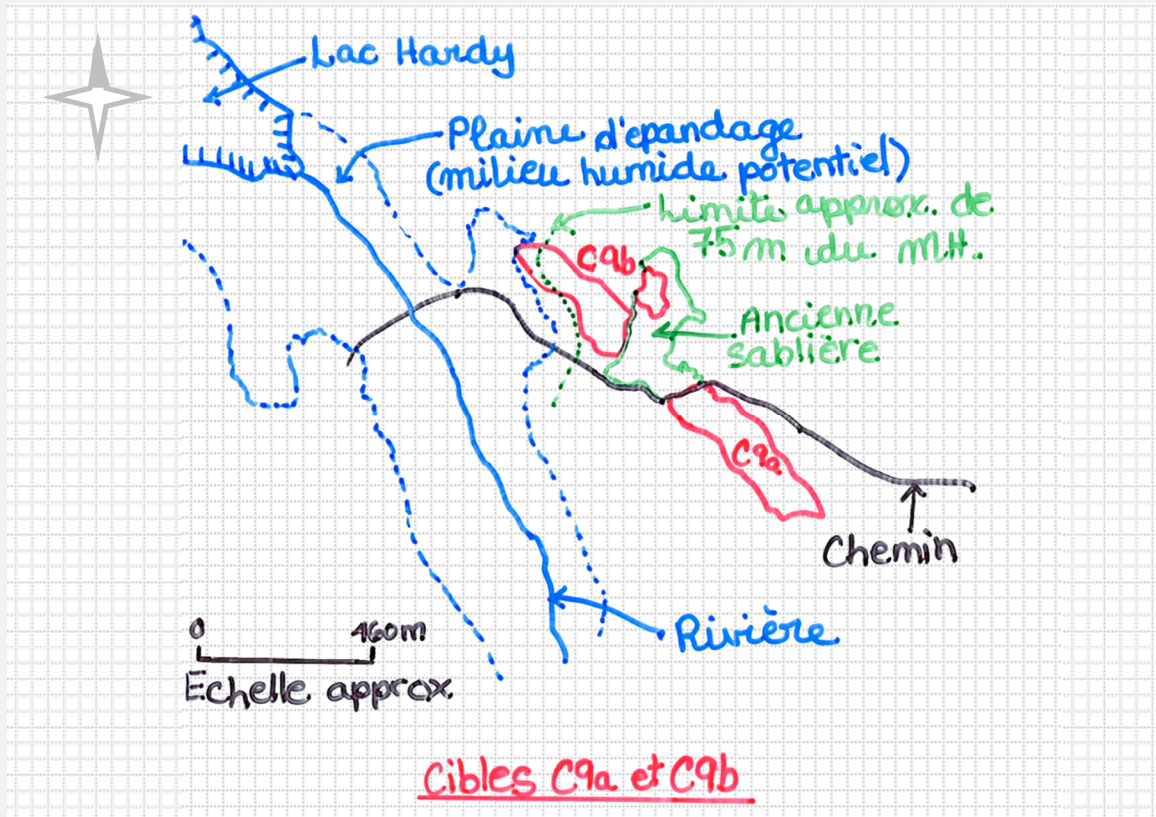 Lac Hardy
Plaine d'epandage
(milieu humide potentiel)
Limite approx. de
75 m du M.H.
C9b
Ancienne
sablière
C9a
Chemin
Rivière
0 460 m
Echelle approx.
Cibles C9a et C9b